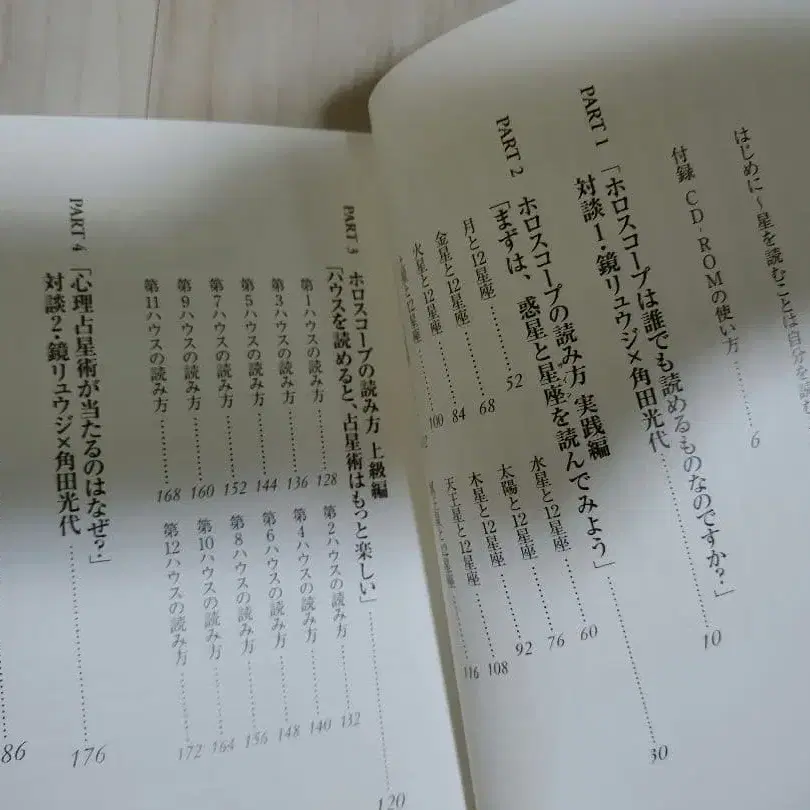 はじめに～星を読むことは自分を読む
付録 CD-ROMの使い方 ……… 6
PART 1 「ホロスコープは誰でも読めるものなのですか？」
対談1・鏡リュウジ×角田光代 ……… 10
PART 2 ホロスコープの読み方 実践編
「まずは、惑星と星座を読んでみよう」 ……… 30
月と12星座 ……… 52
水星と12星座 ……… 60
金星と12星座 ……… 68
太陽と12星座 ……… 76
火星と12星座 ……… 84
木星と12星座 ……… 92
と12星座 ……… 100
天王星と12星座 ……… 108
12星座 ……… 116
PART 3 ホロスコープの読み方 上級編
「ハウスを読めると、占星術はもっと楽しい」 ……… 120
第1ハウスの読み方 ……… 128
第2ハウスの読み方 ……… 132
第3ハウスの読み方 ……… 136
第4ハウスの読み方 ……… 140
第5ハウスの読み方 ……… 144
第6ハウスの読み方 ……… 148
第7ハウスの読み方 ……… 152
第8ハウスの読み方 ……… 156
第9ハウスの読み方 ……… 160
第10ハウスの読み方 ……… 164
第11ハウスの読み方 ……… 168
第12ハウスの読み方 ……… 172
PART 4 「心理占星術が当たるのはなぜ？」
対談2・鏡リュウジ×角田光代 ……… 176
86